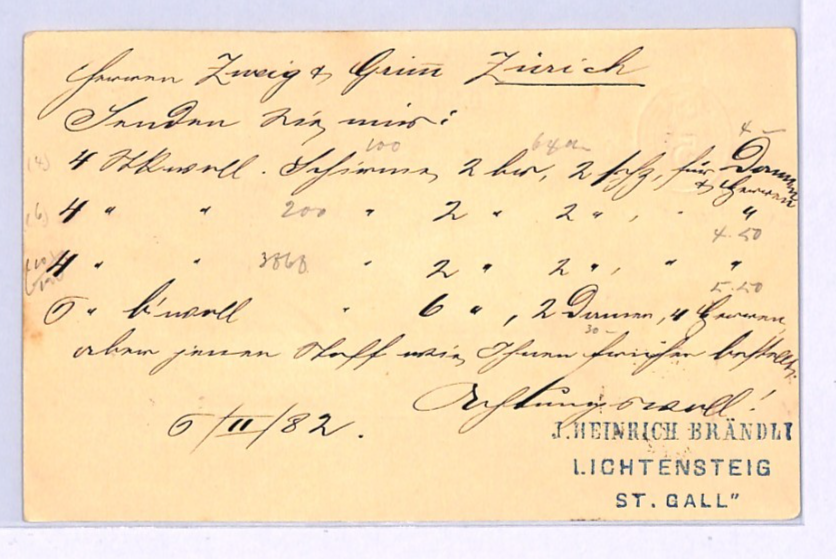 Herren Zweig & Grim̅ Zürich
Senden Sie mir:
100 4.–
(4) 4 Stk woll. Schirme, 2 br, 2 schz, für Damen
& Herren
(6) 4 " " 200 " 2 " 2 ", " "
4.50
4 " " 3868 " 2 " 2 ", " "
5.50
6 " b'woll " 6 ", 2 Damen, 4 Herren,
30–
aber jenen Stoff wie Ihnen früher bestellt.
Achtungsvoll!
6/II/82.
J. HEINRICH BRÄNDLI
LICHTENSTEIG
ST. GALL"